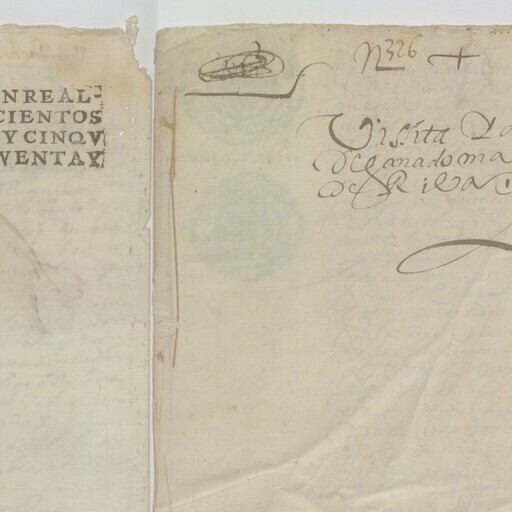 NREAL-
CIENTOS
Y CINQV
VENTAY
N 326 +
Visita
de ganado ma
de Riba